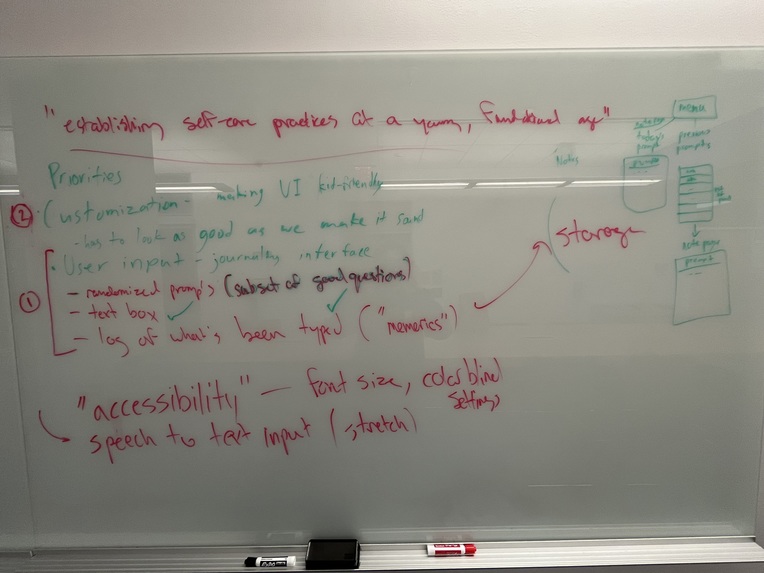 "establishing self-care practices at a young, functional age"
Priorities
② · Customization - making UI kid-friendly
- has to look as good as we make it sound
① · User input - journaling interface
- randomized prompts (subset of good questions)
- text box ✓
- log of what's been typed ("memories") ✓
storage
"accessibility" — font size, colorblind
settings
speech to text input (stretch)
Notes
today's
prompt
previous
prompts
prompt
note page
prompt